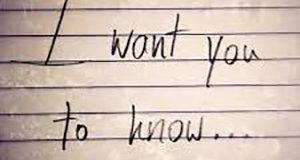 I want you
to know...